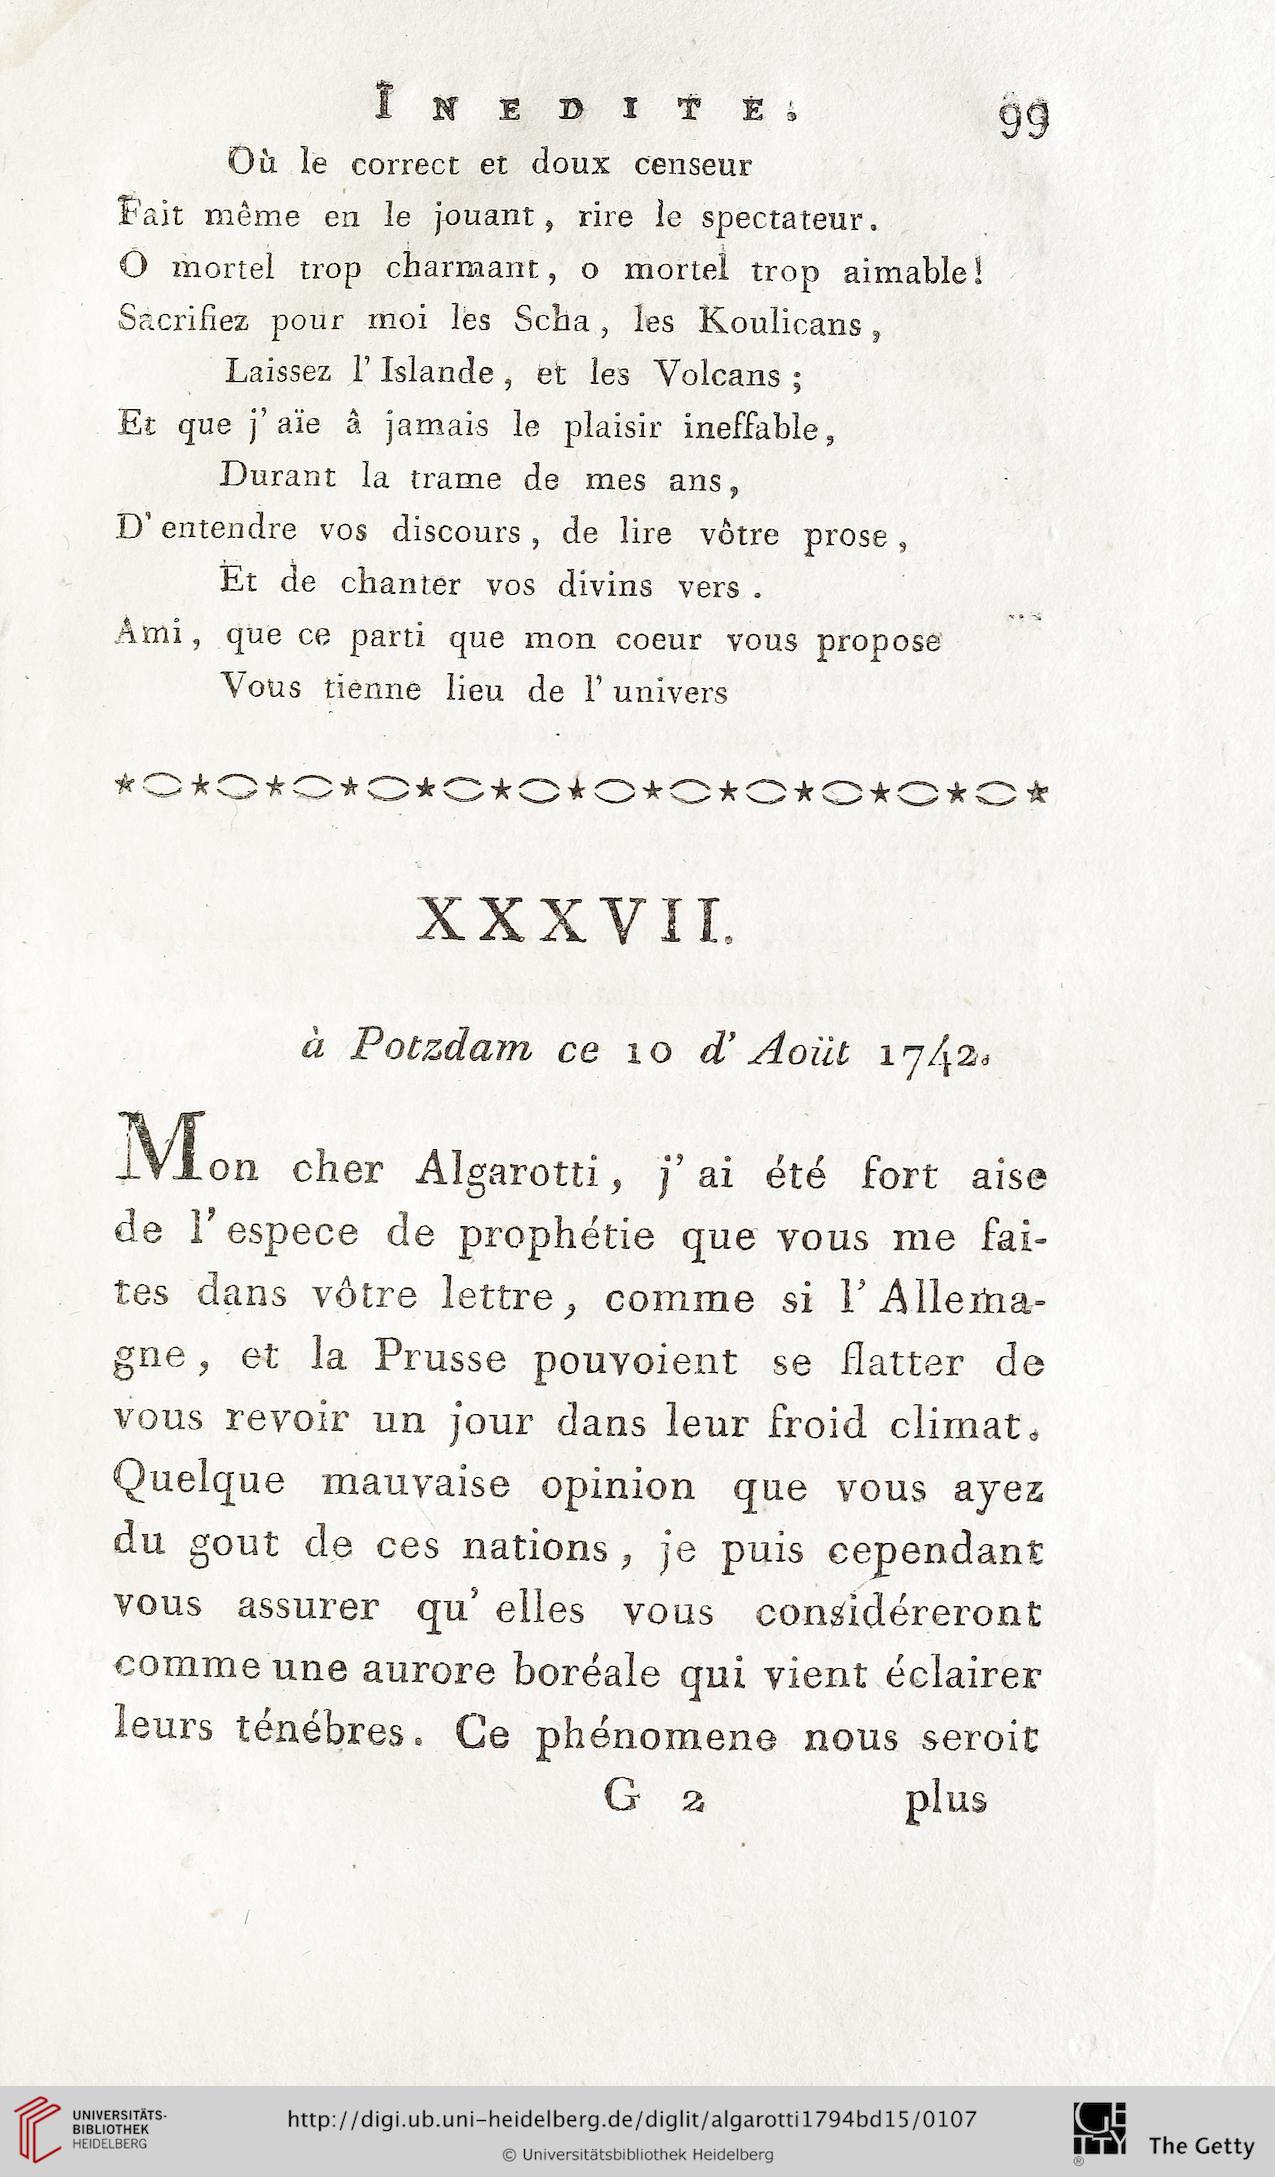 INEDITE. 99
Où le correct et doux censeur
Fait même en le jouant, rire le spectateur.
O mortel trop charmant, o mortel trop aimable!
Sacrifiez pour moi les Scha, les Koulicans,
Laissez l'Islande, et les Volcans;
Et que j'aïe â jamais le plaisir ineffable,
Durant la trame de mes ans,
D'entendre vos discours, de lire vôtre prose,
Et de chanter vos divins vers.
Ami, que ce parti que mon coeur vous propose
Vous tienne lieu de l'univers
XXXVII.
à Potzdam ce 10 d'Aoüt 1742.
Mon cher Algarotti, j'ai été fort aise
de l'espece de prophétie que vous me fai-
tes dans vôtre lettre, comme si l'Allema-
gne, et la Prusse pouvoient se flatter de
vous revoir un jour dans leur froid climat.
Quelque mauvaise opinion que vous ayez
du gout de ces nations, je puis cependant
vous assurer qu'elles vous considéreront
comme une aurore boréale qui vient éclairer
leurs ténébres. Ce phénomene nous seroit
G 2 plus
UNIVERSITÄTS-
BIBLIOTHEK
HEIDELBERG
http://digi.ub.uni-heidelberg.de/diglit/algarotti1794bd15/0107
© Universitätsbibliothek Heidelberg
GETTY
The Getty